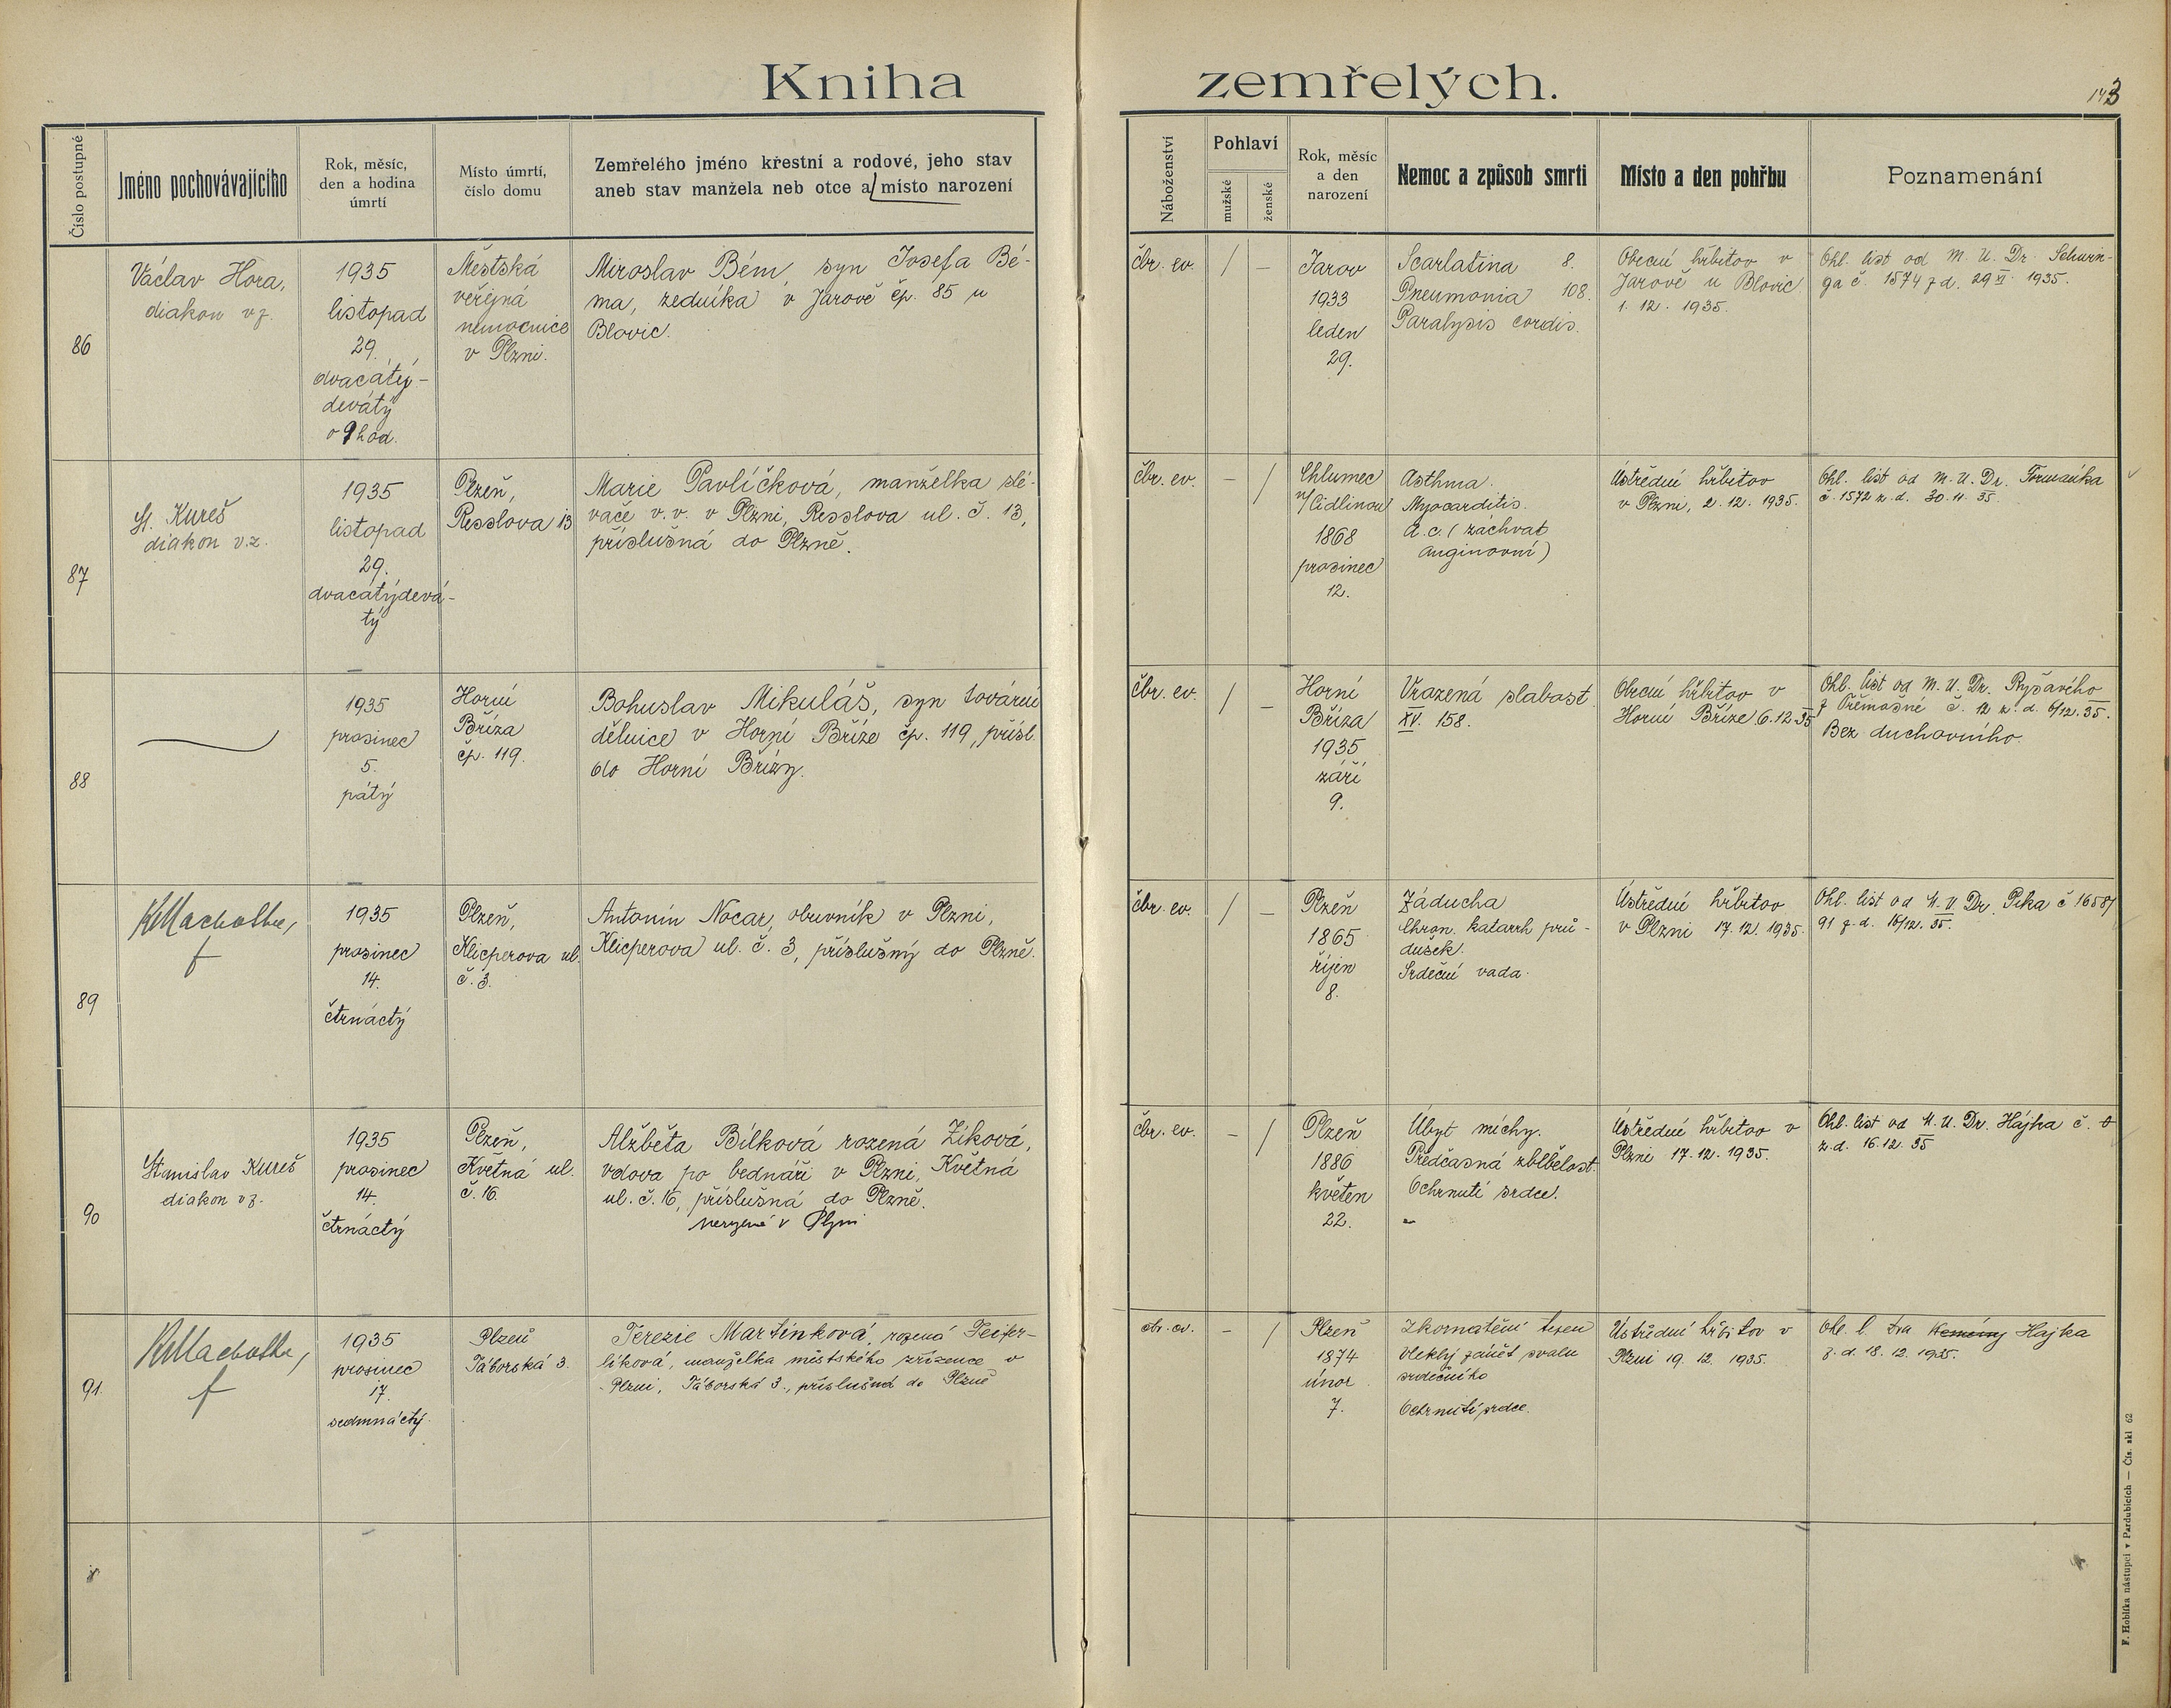 Kniha zemřelých.
143
Číslo postupné
Jméno pochovávajícího
Rok, měsíc,
den a hodina
úmrtí
Místo úmrtí,
číslo domu
Zemřelého jméno křestní a rodové, jeho stav
aneb stav manžela neb otce a místo narození
Náboženství
Pohlaví
mužské
ženské
Rok, měsíc
a den
narození
Nemoc a způsob smrti
Místo a den pohřbu
Poznamenání
86
Václav Hora,
diakon v z.
1935
listopad
29.
dvacátý-
devátý
o 9 hod.
Městská
veřejná
nemocnice
v Plzni.
Miroslav Bém, syn Josefa Bé-
ma, zedníka v Jarově čp. 85 u
Blovic.
čbr. ev.
/
–
Jarov
1933
leden
29.
Scarlatina 8.
Pneumonia 108.
Paralysis cordis.
Obecní hřbitov v
Jarově u Blovic
1. 12. 1935.
Ohl. list od M. U. Dr. Schwin-
ga č. 1574 z d. 29 XI. 1935.
87
St. Kureš
diakon v.z.
1935
listopad
29.
dvacátýdevá-
tý
Plzeň,
Resslova 13
Marie Pavlíčková, manželka slé-
vače v.v. v Plzni, Resslova ul. č. 13,
příslušná do Plzně.
čbr. ev.
–
/
Chlumec
n/Cidlinou
1868
prosinec
12.
Asthma.
Myocarditis.
A.c. (záchvat
anginovní)
Ústřední hřbitov
v Plzni, 2. 12. 1935.
Ohl. list od M. U. Dr.
č. 1572 z. d. 30. 11. 35.
88
1935
prosinec
5.
pátý
Horní
Bříza
čp. 119.
Bohuslav Mikuláš, syn tovární
dělnice v Horní Bříze čp. 119, přísl.
do Horní Břízy.
čbr. ev.
/
–
Horní
Bříza
1935
září
9.
Vrazená slabost
XV. 158.
Obecní hřbitov v
Horní Bříze 6.12.35
Ohl. list od M. U. Dr. Ryšavého
z Třemošné č. 12 z. d. 6/12. 35.
Bez duchovního.
89
1935
prosinec
14.
čtrnáctý
Plzeň,
Klicperova ul.
č. 3.
Antonín Nocar, obuvník v Plzni,
Klicperova ul. č. 3, příslušný do Plzně.
čbr. ev.
/
–
Plzeň
1865
říjen
8.
Záducha
Chron. katarrh prů-
dušek.
Srdeční vada.
Ústřední hřbitov
v Plzni 17. 12. 1935.
Ohl. list od M. U. Dr. Pika č 1658/
91 z. d. 16/12. 35.
90
Stanislav Kureš
diakon v z.
1935
prosinec
14.
čtrnáctý
Plzeň,
Květná ul.
č. 16.
Alžběta Bílková rozená Zíková,
vdova po bednáři v Plzni, Květná
ul. č. 16, příslušná do Plzně.
v Plzni
čbr. ev.
–
/
Plzeň
1886
květen
22.
Úbyt míchy.
Předčasná zblbělost.
Ochrnutí srdce.
Ústřední hřbitov v
Plzni 17. 12. 1935.
Ohl. list od M. U. Dr. Hájka č.
z. d. 16. 12. 35
91.
1935
prosinec
17.
sedmnáctý.
Plzeň
Táborská 3.
Terezie Martínková, rozená Feifer-
líková, manželka městského zřízence v
Plzni, Táborská 3., příslušná do Plzně
čbr. ev.
–
/
Plzeň
1874
únor
7.
Zkornatění tepen
Vleklý zánět svalu
srdečního
Ochrnutí srdce.
Ústřední hřbitov v
Plzni 19. 12. 1935.
Ohl. l. Dra Hajka
z. d. 18. 12. 1935.
F. Hoblíka nástupci v Pardubicích — Čís. skl 62